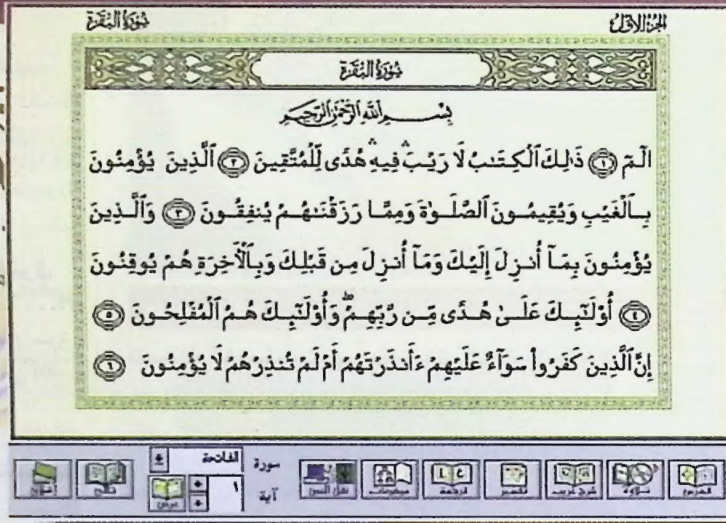 الجزء الأول
سورة البقرة
سورة البقرة
بسم الله الرحمن الرحيم
الٓمٓ ١ ذَٰلِكَ ٱلْكِتَٰبُ لَا رَيْبَ ۛ فِيهِ ۛ هُدًى لِّلْمُتَّقِينَ ٢ ٱلَّذِينَ يُؤْمِنُونَ
بِٱلْغَيْبِ وَيُقِيمُونَ ٱلصَّلَوٰةَ وَمِمَّا رَزَقْنَٰهُمْ يُنفِقُونَ ٣ وَٱلَّذِينَ
يُؤْمِنُونَ بِمَآ أُنزِلَ إِلَيْكَ وَمَآ أُنزِلَ مِن قَبْلِكَ وَبِٱلْءَاخِرَةِ هُمْ يُوقِنُونَ
٤ أُو۟لَٰٓئِكَ عَلَىٰ هُدًى مِّن رَّبِّهِمْ ۖ وَأُو۟لَٰٓئِكَ هُمُ ٱلْمُفْلِحُونَ ٥
إِنَّ ٱلَّذِينَ كَفَرُوا۟ سَوَآءٌ عَلَيْهِمْ ءَأَنذَرْتَهُمْ أَمْ لَمْ تُنذِرْهُمْ لَا يُؤْمِنُونَ ٦
الفهرس تلاوة شرح غريب تفسير ترجمة موضوعات نقل النص
سورة الفاتحة
آية ١
عرض